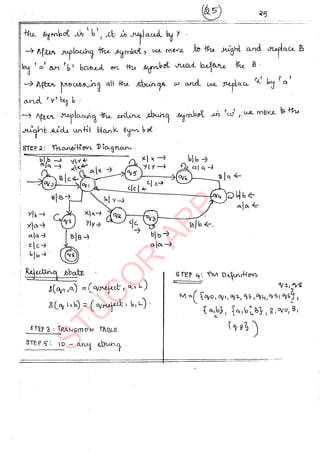 (85)
25
the symbol is 'b', it is replaced by Y.
→ After replacing the symbol, we move to the right and replace B
by 'a' or 'b' based on the symbol read before the B.
→ After processing all the strings w and we replace 'X' by 'a'
and 'Y' by b.
→ After replacing the entire string symbol in 'w', we move to the
right side until blank symbol.
STEP 2: Transition Diagram.
b|b →
a|a →
Y|Y ←
X|X →
b|b →
a|X →
q5
Y|Y →
a|a →
B|C ←
q0
q1
q6
B|a ←
C|C →
C|C
B|B →
b|Y →
b|b ←
a|a ←
q4
Y|b →
X|a →
q7
X|X →
Y|Y →
q2
C|C
q3
B|b ←
a|a →
C|C →
b|b →
B|B →
b|b →
a|a →
q8
STUCOR APP
Rejecting state
δ(q1,a) = (qreject, a, L)
δ(q,b) = (qreject, b, L)
STEP 3: TRANSITION TABLE
STEP 5: ID - any string.
STEP 4: TM Definition
q7, q8
M = ({q0, q1, q2, q3, q4, q5, q6},
{a,b}, {a,b,B}, δ, q0, B,
c
{q8})